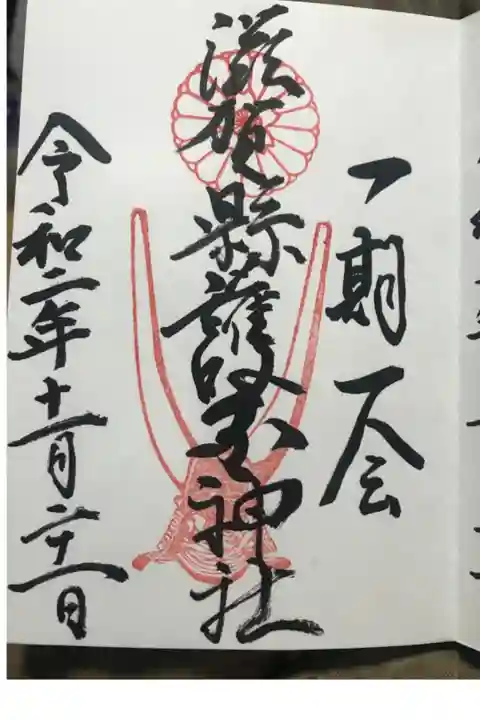 一期一会
滋賀縣護國神社
令和二年十一月廿一日